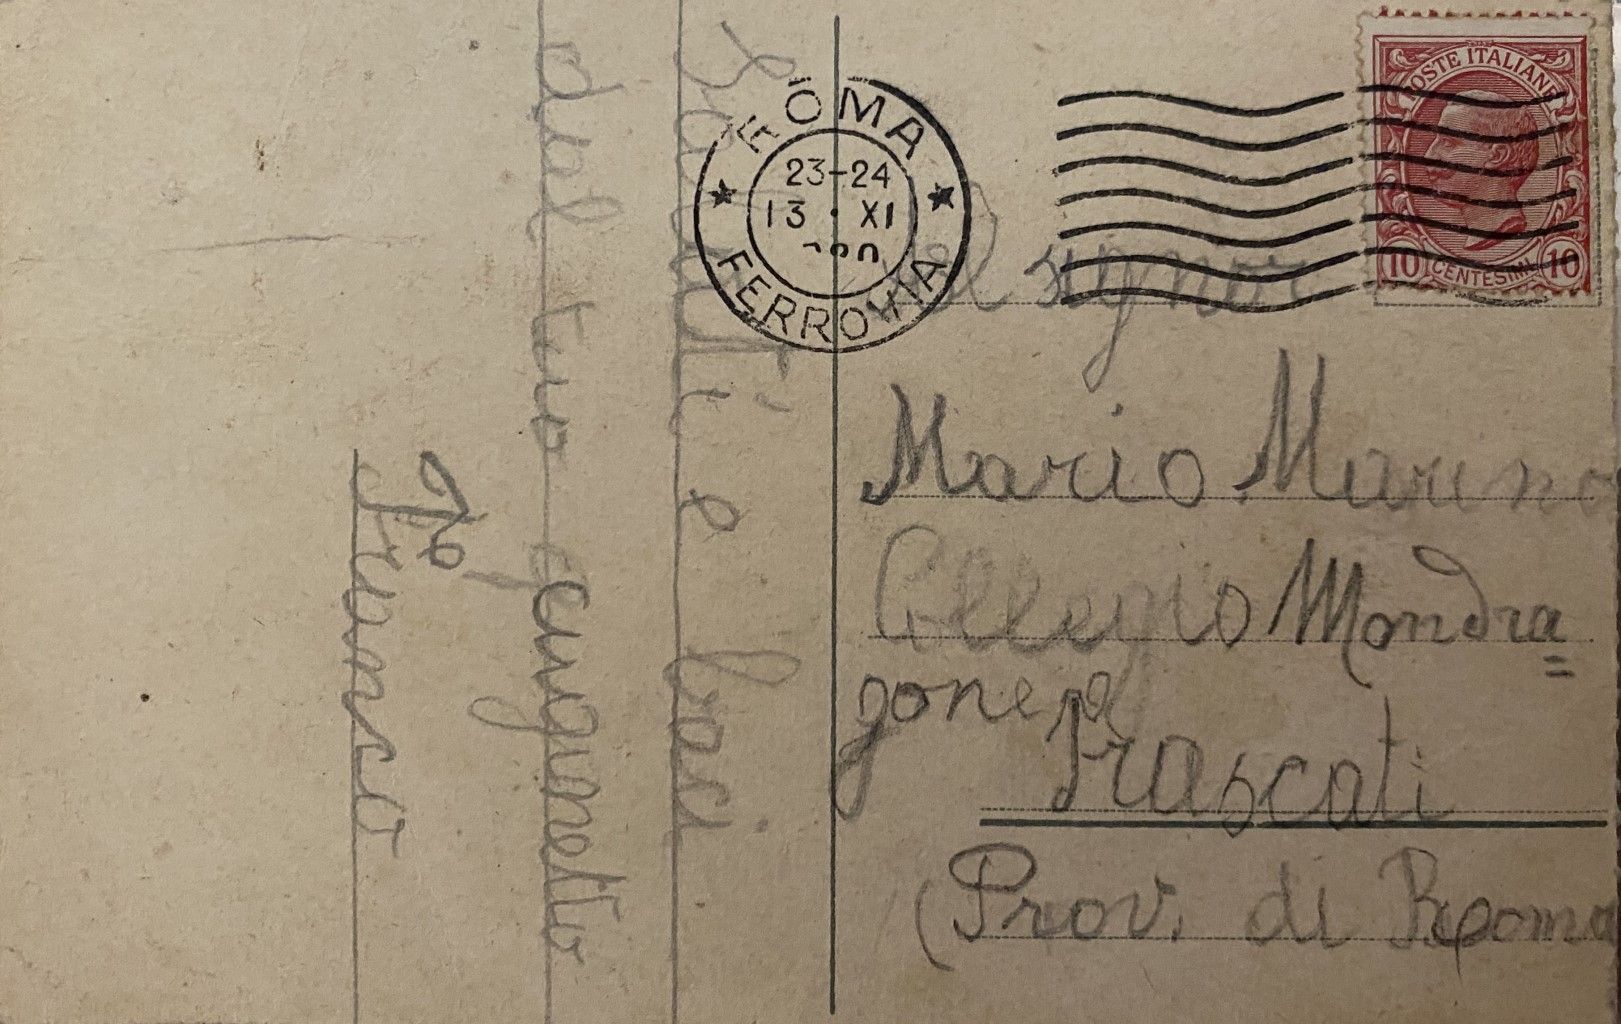 Saluti e baci
dal tuo cuginetto
Franco
ROMA
23-24
13 · XI
FERROVIA
POSTE ITALIANE
10 CENTESIMI 10
Al signor
Mario Marino
Collegio Mondra=
gone
Frascati
(Prov. di Roma